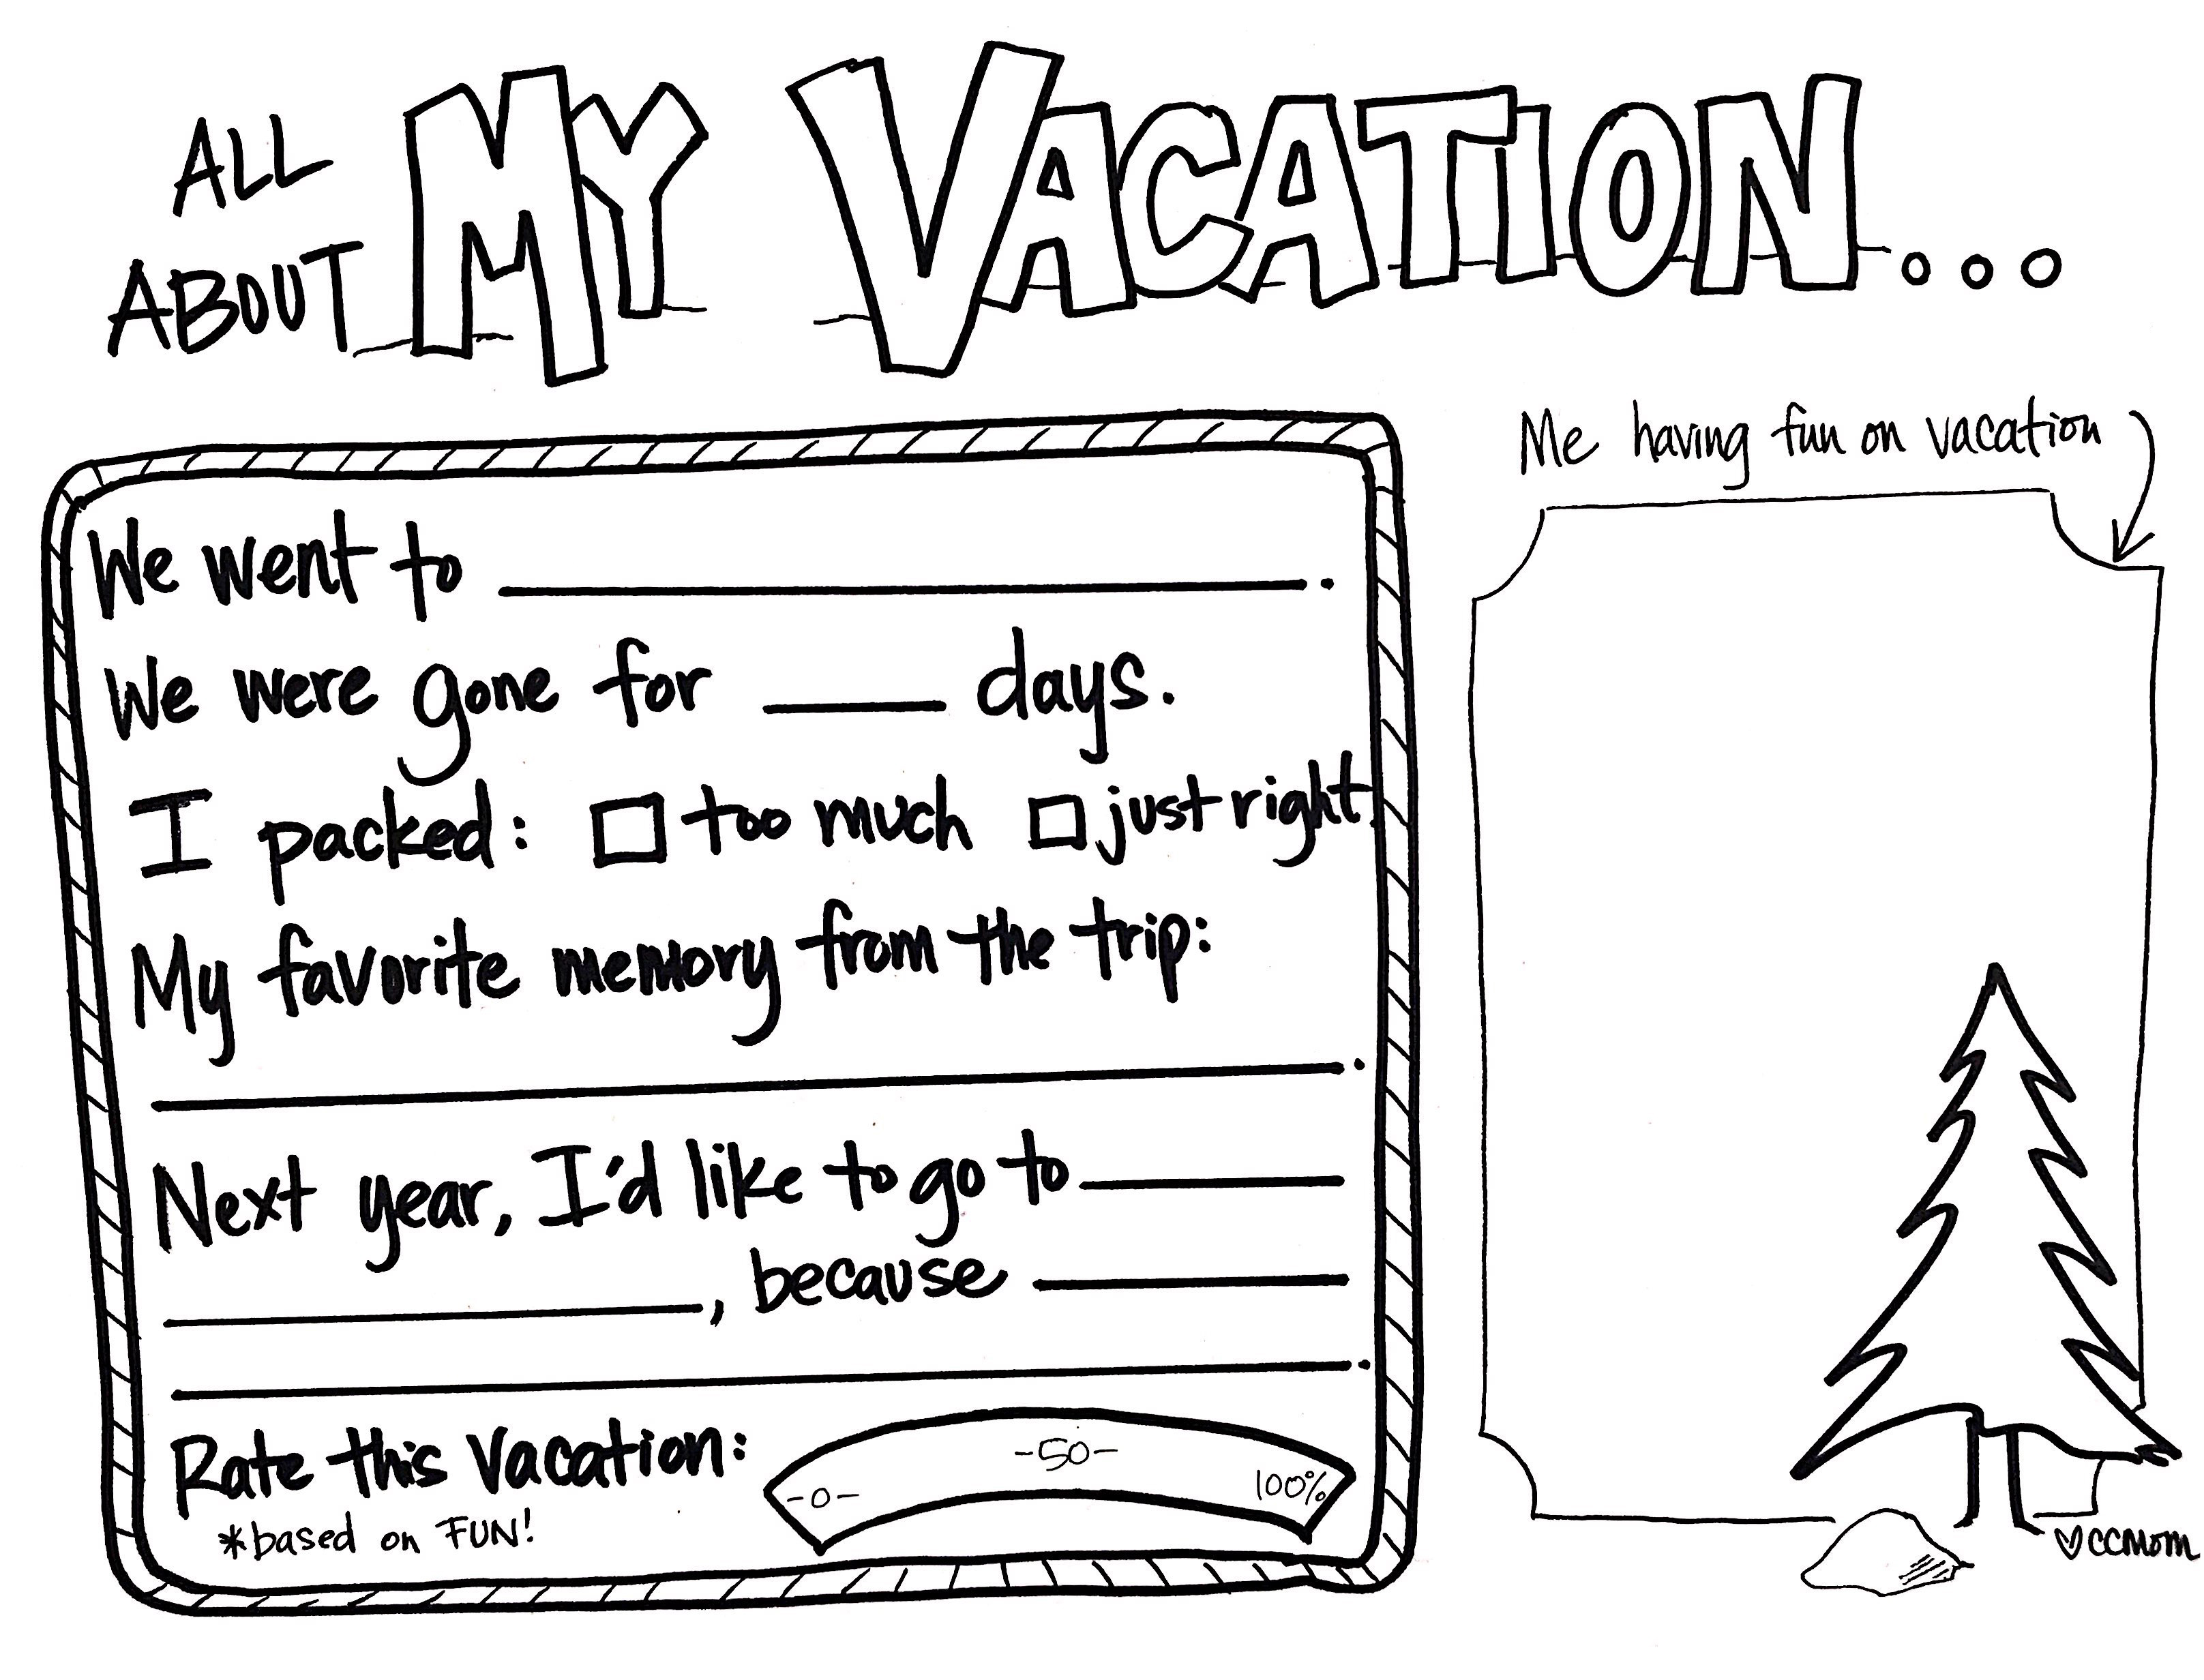 ALL
ABOUT MY VACATION...
We went to ____________.
We were gone for ____ days.
I packed: □ too much □ just right.
My favorite memory from the trip:
____________.
Next year, I'd like to go to ______
____________, because ______
____________.
Rate this Vacation:
*based on FUN!
-0- -50- 100%
Me having fun on vacation
♡CCMOM